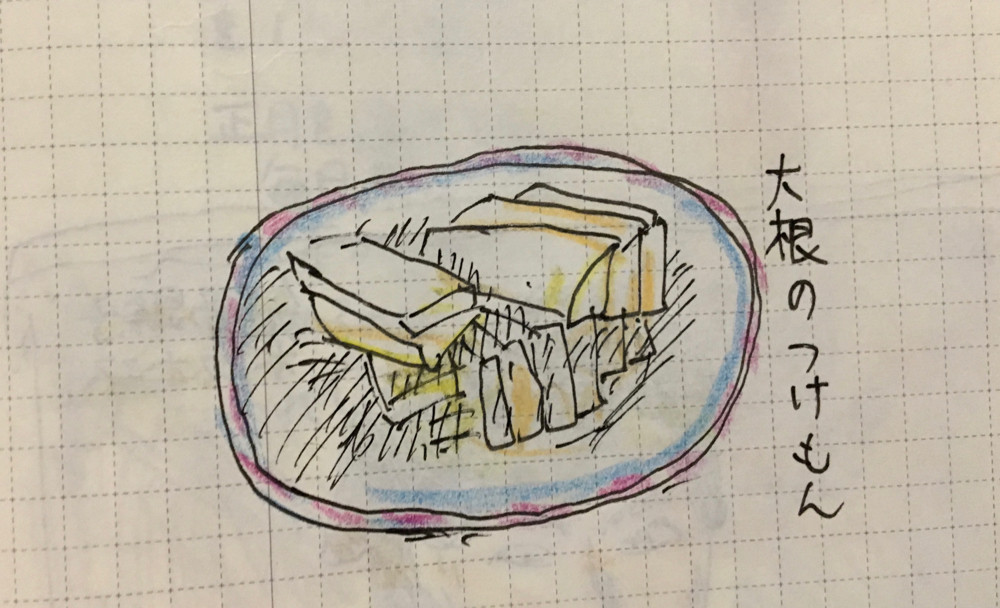 大根のつけもん